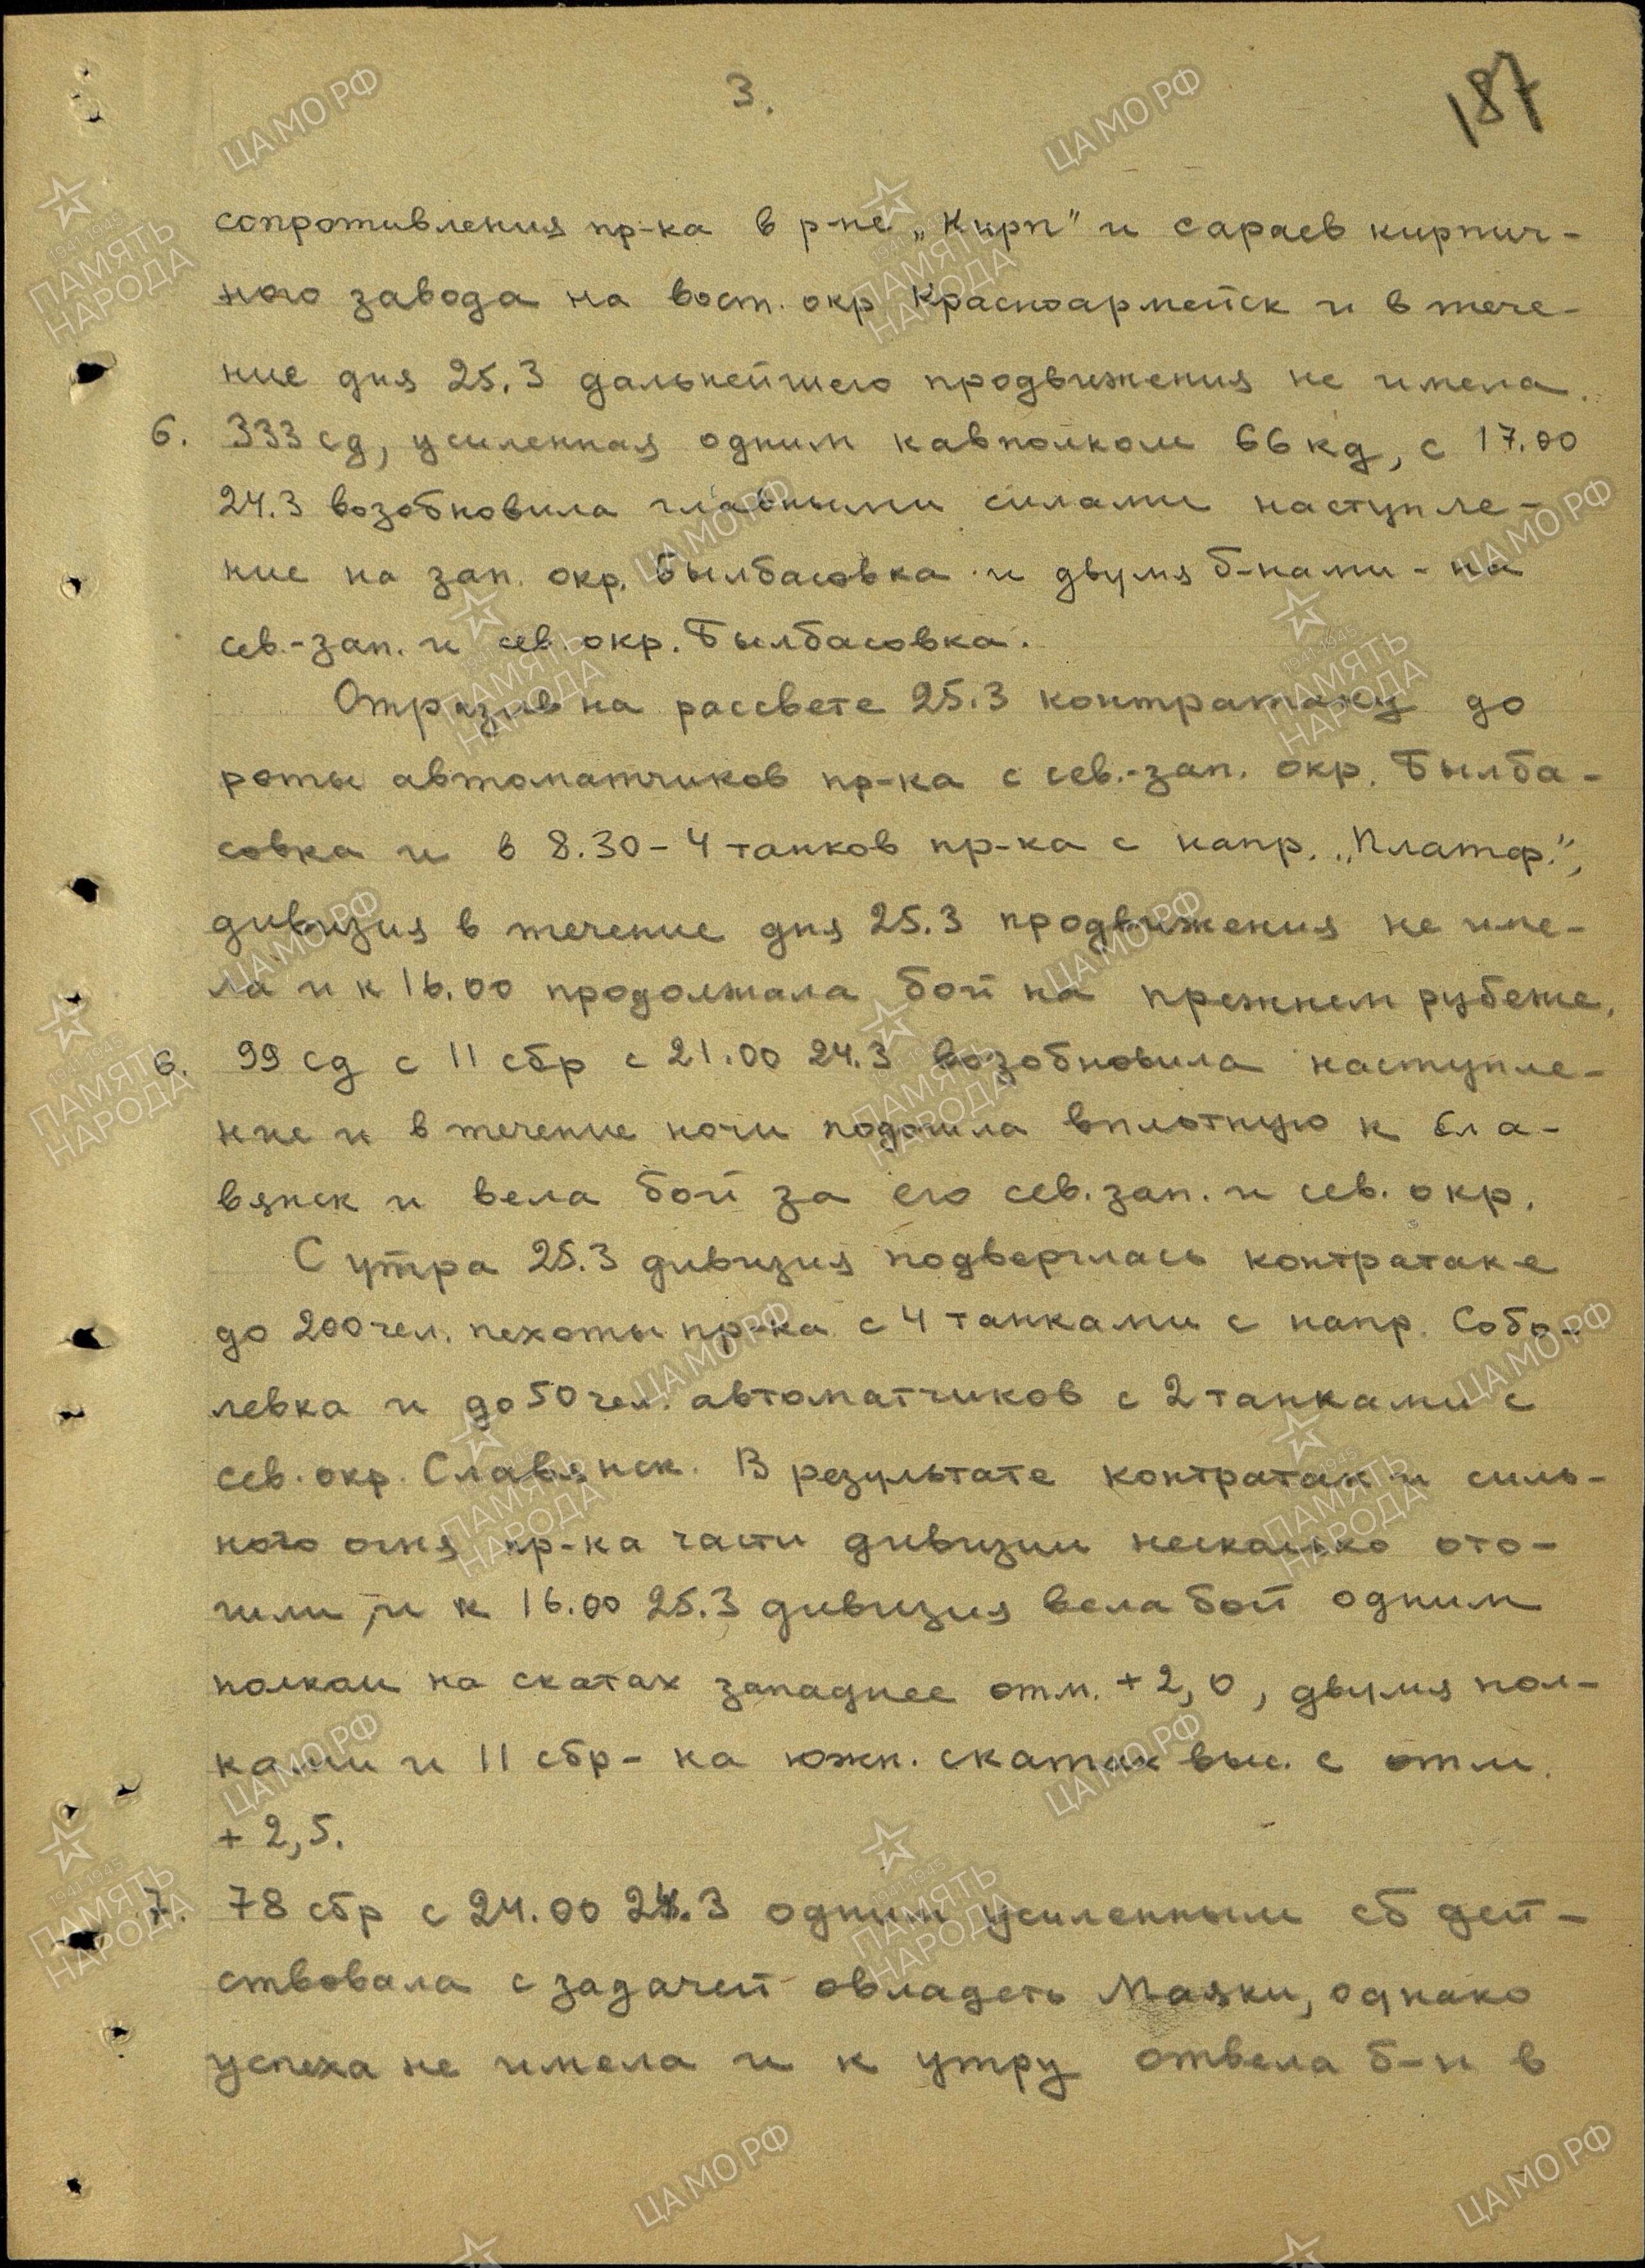 3.
187
сопротивления пр-ка в р-не „Кирп" и сараев кирпич-
ного завода на вост. окр Красноармейск и в тече-
ние дня 25.3 дальнейшего продвижения не имела.
6. 333 сд, усиленная одним кавполком 66 кд, с 17.00
24.3 возобновила главными силами наступле-
ние на зап. окр. Былбасовка и двумя б-нами - на
сев.-зап. и сев. окр. Былбасовка.
Отразив на рассвете 25.3 контратаку до
роты автоматчиков пр-ка с сев.-зап. окр. Былба-
совка и в 8.30 - 4 танков пр-ка с напр. „Платф.",
дивизия в течение дня 25.3 продвижения не име-
ла и к 16.00 продолжала бой на прежнем рубеже.
6. 99 сд с 11 сбр с 21.00 24.3 возобновила наступле-
ние и в течение ночи подошла вплотную к Сла-
вянск и вела бой за его сев. зап. и сев. окр.
С утра 25.3 дивизия подверглась контратаке
до 200 чел. пехоты пр-ка с 4 танками с напр. Собо-
левка и до 50 чел. автоматчиков с 2 танками с
сев. окр. Славянск. В результате контратак и силь-
ного огня пр-ка части дивизии несколько ото-
шли, и к 16.00 25.3 дивизия вела бой одним
полком на скатах западнее отм. +2,0, двумя пол-
ками и 11 сбр - на южн. скатах выс. с отм.
+2,5.
7. 78 сбр с 24.00 24.3 одним усиленным сб дей-
ствовала с задачей овладеть Маяки, однако
успеха не имела и к утру отвела б-н в
ЦАМО РФ
1941-1945
ПАМЯТЬ
НАРОДА